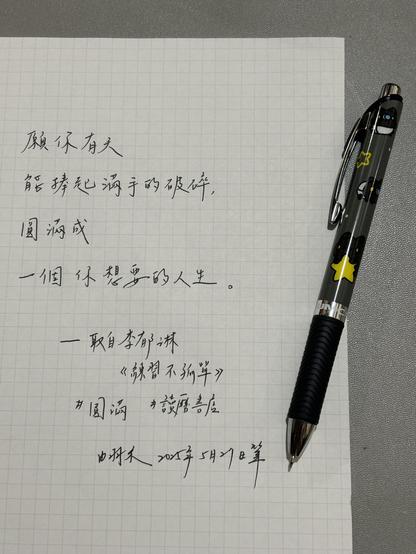 願你有天
能捧起滿手的破碎,
圓滿成
一個你想要的人生。
— 取自李郁淋
《練習不孤單》
#圓滿 #讀曆書店
2025年5月27日筆